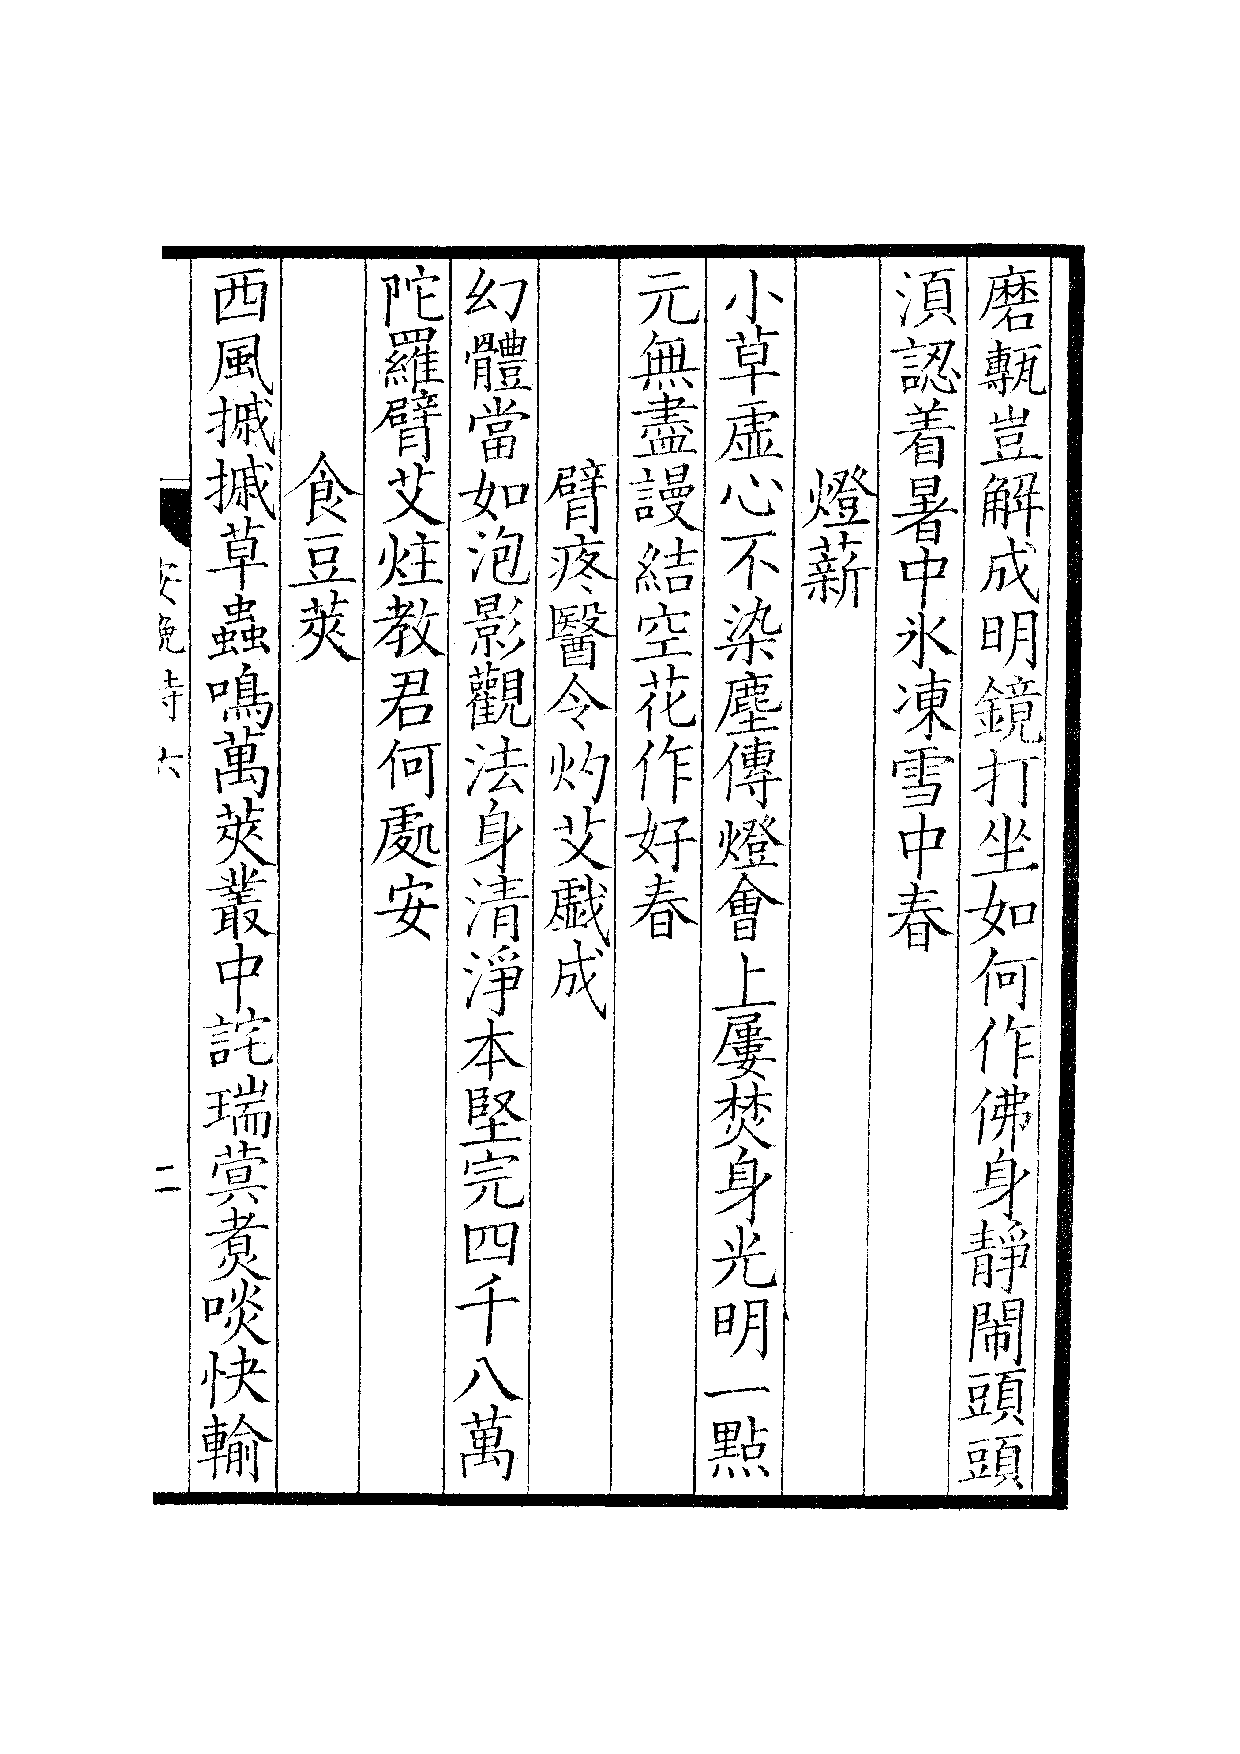 磨甎豈解成明鏡打坐如何作佛身靜閙頭頭
湏認着暑中氷凍雪中春
燈薪
小草虛心不染塵傳燈會上屢焚身光明一點
元無盡謾結空花作好春
臂疼醫令灼艾戱成
幻體當如泡影觀法身清淨本堅完四千八萬
陀羅臂艾炷教君何處安
食豆莢
西風摵摵草蟲鳴萬莢叢中詫瑞蓂煑啖快輸
安晚詩六
二